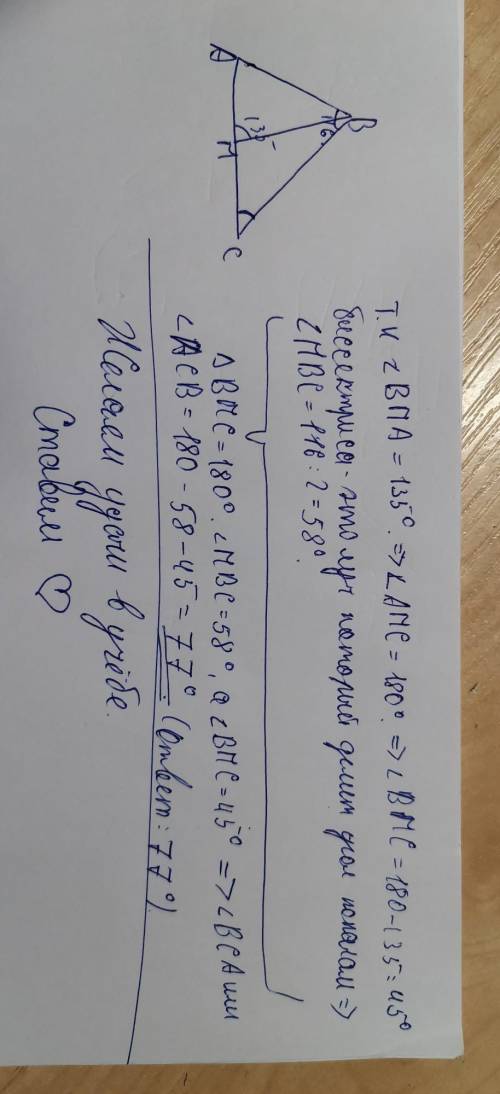 B
116°
135°
A
M
C
Т.к ∠BMA = 135°. => ∠AMC = 180°. => ∠BMC = 180-135 = 45°
биссектриса - это луч который делит угол пополам =>
∠MBC = 116 : 2 = 58°.
△BMC = 180°. ∠MBC = 58°, а ∠BMC = 45° => ∠BCA или
∠ACB = 180 - 58 - 45 = 77°. (Ответ: 77°).
Желаем удачи в учёбе.
Ставим ♡